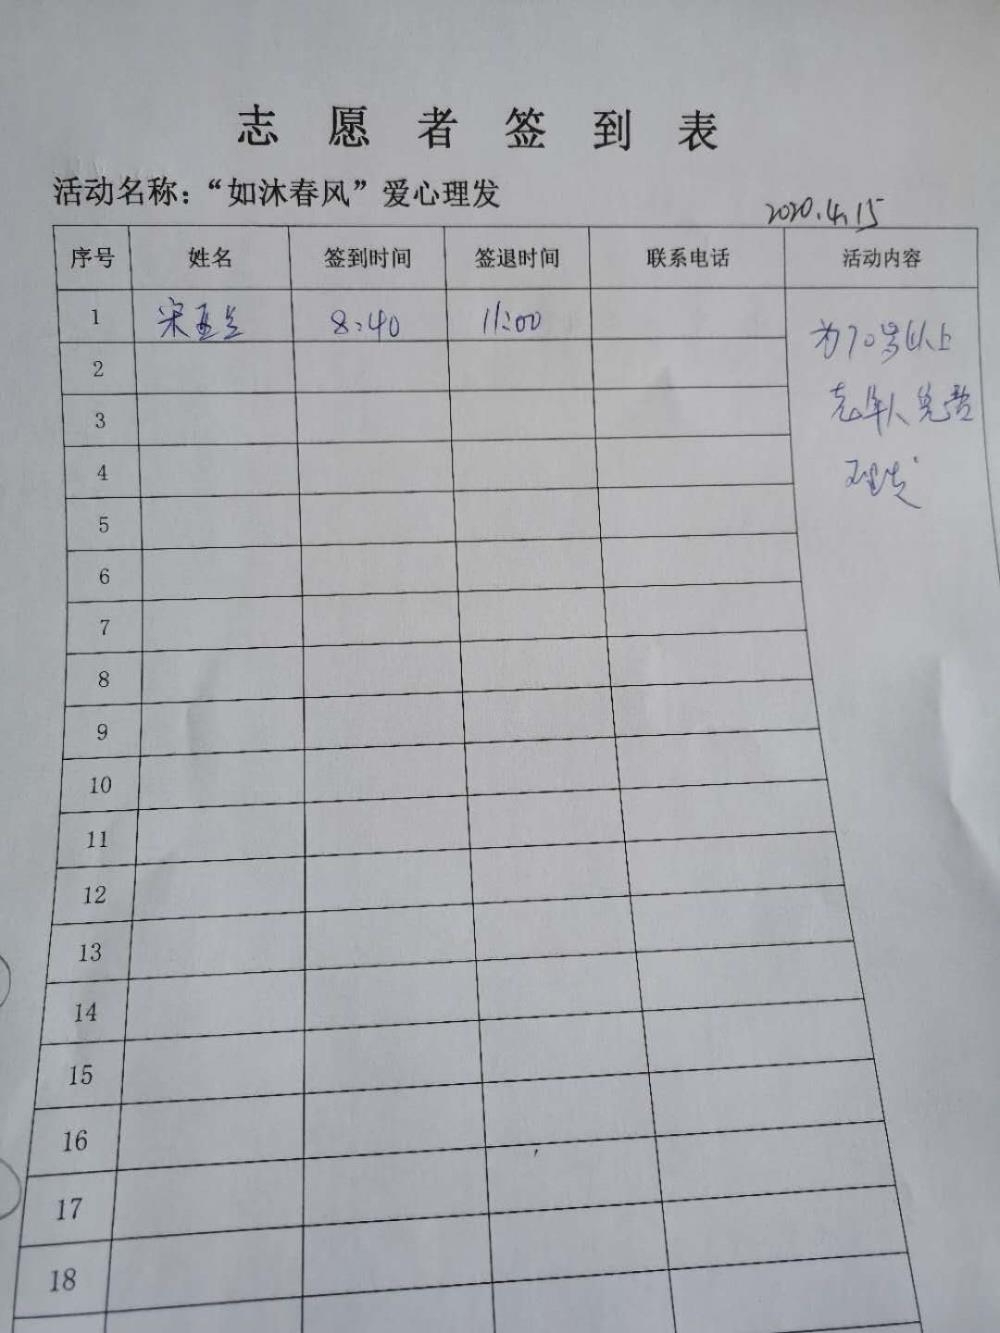 志愿者签到表
活动名称：“如沐春风”爱心理发
2020.4.15
序号 姓名 签到时间 签退时间 联系电话 活动内容
1 宋亚兰 8:40 11:00
为70岁以上
老年人免费
理发
2
3
4
5
6
7
8
9
10
11
12
13
14
15
16
17
18